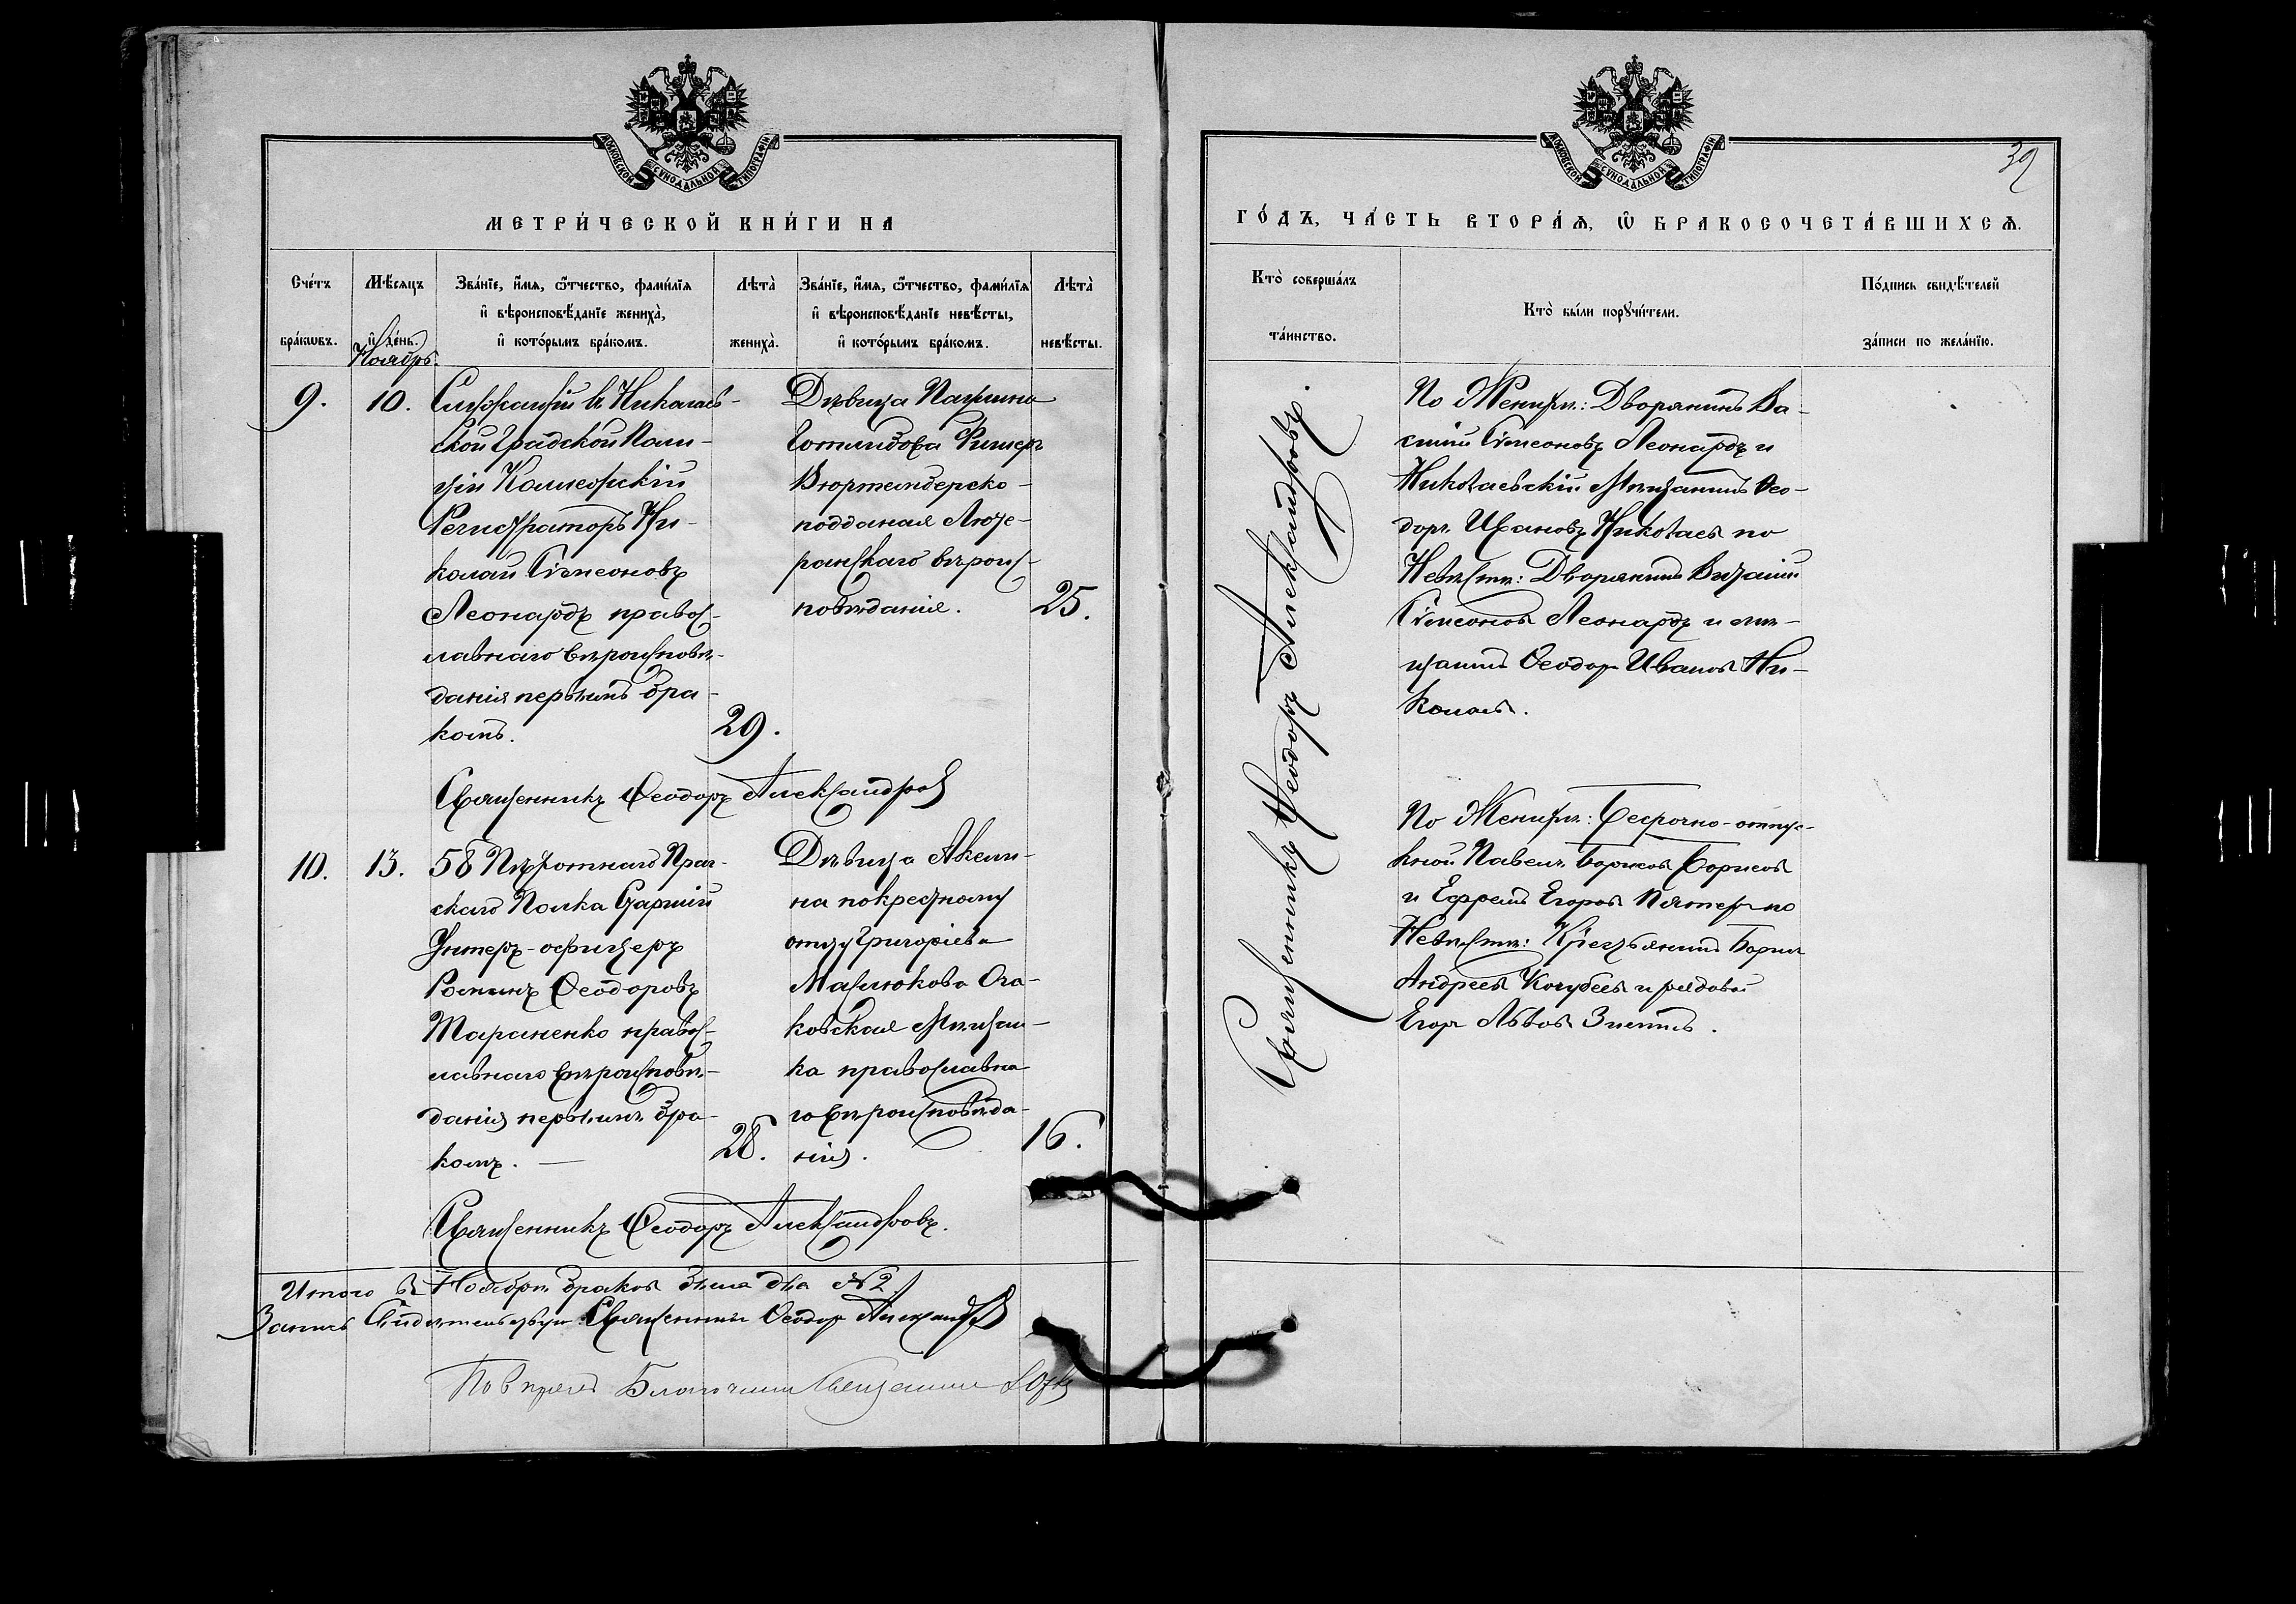 МОСКОВСКОЙ СѴНОДАЛЬНОЙ ТИПОГРАФІИ
МЕТРИ́ЧЕСКОЙ КНИ́ГИ НА
Сче́тъ бра́кѡвъ.
Мѣ́сяцъ и҆ де́нь.
Зва́нїе, и҆́мя, ѻ҆́тчество, фами́лїя
и҆ вѣроисповѣ́данїе жениха̀,
и҆ кото́рымъ бра́комъ.
Лѣта̀ жениха̀.
Зва́нїе, и҆́мя, ѻ҆́тчество, фами́лїя
и҆ вѣроисповѣ́данїе невѣ́сты,
и҆ кото́рымъ бра́комъ.
Лѣта̀ невѣ́сты.
Ноябрь.
9.
10.
Служащій въ Николаев-
ской Градской Поли-
ціи Коллежскій
Регистраторъ Ни-
колай Сѵмеоновъ
Леонардъ правос-
лавнаго вѣроисповѣ-
данія первымъ бра-
комъ.
29.
Дѣвица Паулина
Готлидова
Вюртемберско-
подданая Люте-
ранскаго вѣроис-
повѣданія.
25.
Священникъ Ѳеодоръ Александровъ
10.
13.
58 Пѣхотнаго Праг-
скаго Полка Старшій
Унтеръ-офицеръ
Романъ Ѳеодоровъ
Тараненко правос-
лавнаго вѣроисповѣ-
данія первымъ бра-
комъ.
28.
Дѣвица Акели-
на по крестному
отцу Григоріева
Маслюкова Оча-
ковская Мѣщан-
ка православна-
го вѣроисповѣда-
нія.
16.
Священникъ Ѳеодоръ Александровъ.
Итого въ Ноябрѣ браковъ было два №2.
Запись Свидѣтельствую: Священникъ Ѳеодоръ Александровъ
Благочинный Священникъ
МОСКОВСКОЙ СѴНОДАЛЬНОЙ ТИПОГРАФІИ
39
ГО́ДЪ, ЧА́СТЬ ВТОРА́Ѧ, Ѡ҆ БРАКОСОЧЕТА́ВШИХСѦ.
Кто̀ соверша́лъ
та́инство.
Кто̀ бы́ли порꙋчи́тели.
По́дпись свидѣ́телей
за́писи по жела́нїю.
Священникъ Ѳеодоръ Александровъ.
По Женихѣ: Дворянинъ Ва-
силій Сѵмеоновъ Леонардъ и
Николаевскій Мѣщанинъ Ѳео-
доръ Ивановъ Николаев по
Невѣстѣ: Дворянинъ Виталій
Сѵмеонов Леонардъ и мѣ-
щанинъ Ѳеодоръ Иванов Ни-
колаев.
По Женихѣ: Бесрочно-отпус-
кной Павелъ Борисов Борисов
и Ефремъ Егоров по
Невѣстѣ: Крестьянинъ Борисъ
Андреев Кочубеев и рядовой
Егоръ Львов